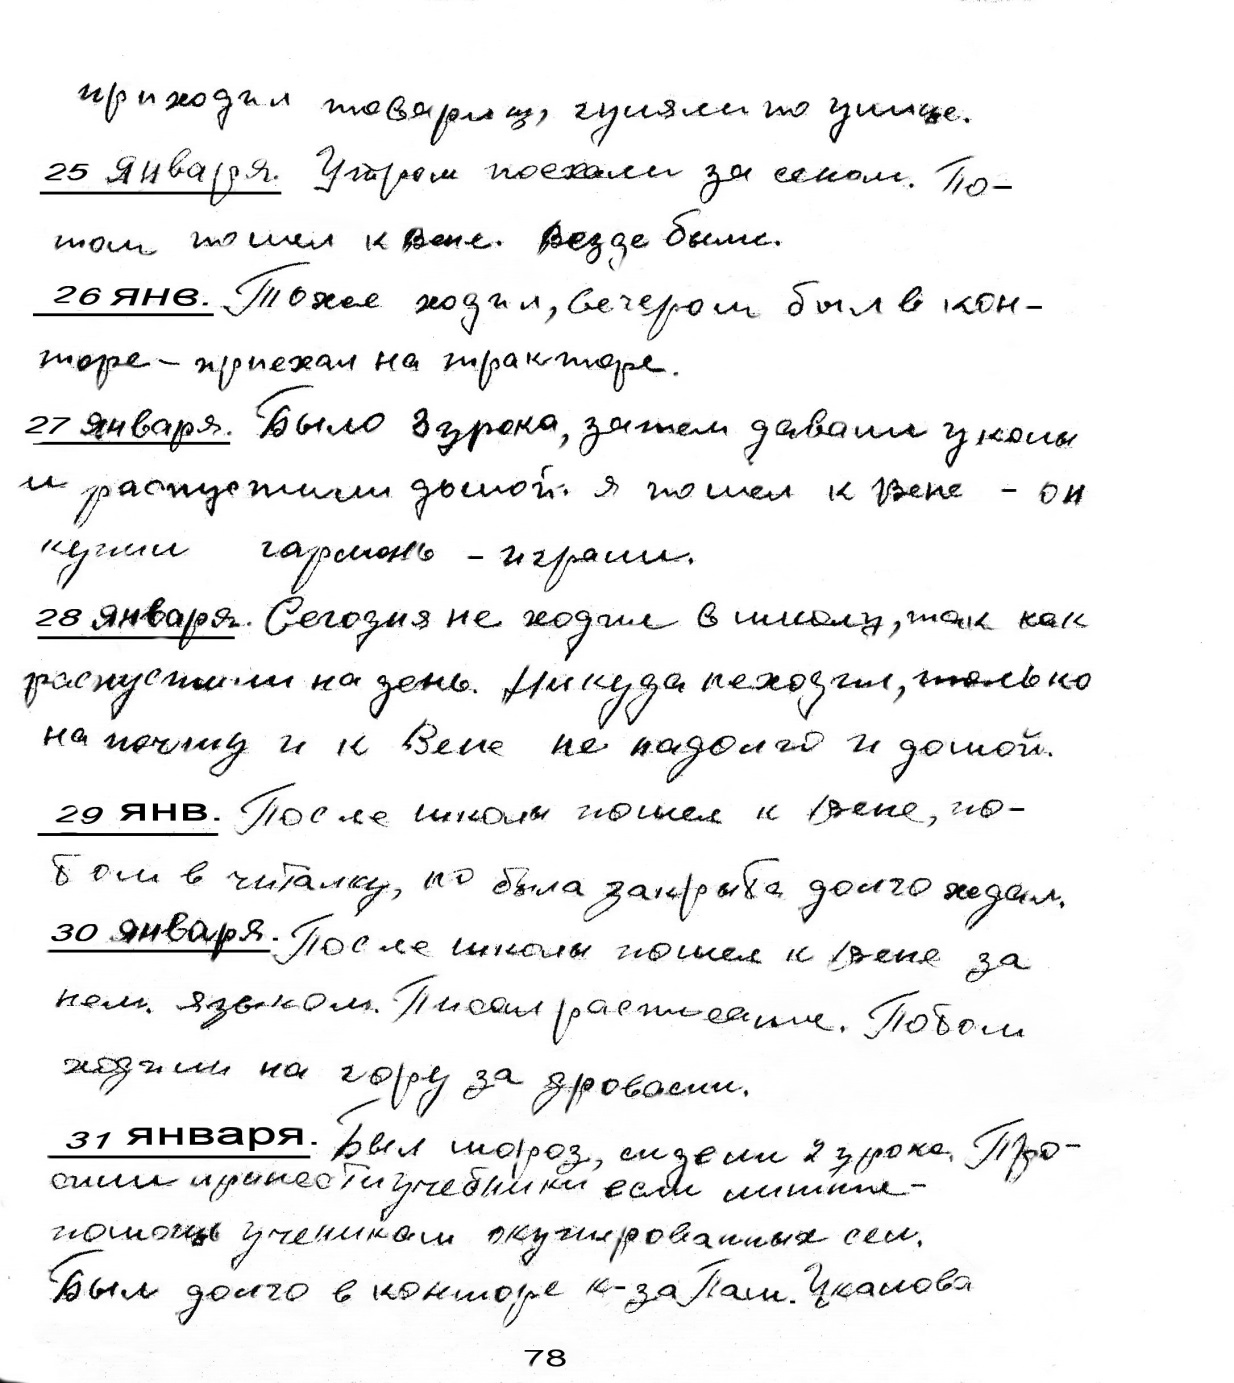 приходил товарищ, гуляли по улице.
25 января. Утром поехали за сеном. По-
том пошел к Вене. Везде были.
26 янв. Тоже ходил, вечером был в кон-
торе – приехал на тракторе.
27 января. Было 3 урока, затем давали уколы
и распустили домой. Я пошел к Вене – он
купил гармонь – играли.
28 января. Сегодня не ходил в школу, так как
распустили на день. Никуда не ходил, только
на почту и к Вене не надолго и домой.
29 янв. После школы пошел к Вене, по-
том в читалку, но была закрыта долго ждал.
30 января. После школы пошел к Вене за
нем. языком. Писал расписание. Потом
ходили на гору за дровами.
31 января. Был мороз, сидели 2 урока. Про-
сили принести учебники если лишние –
помощь ученикам окупированных сел.
Был долго в конторе к-за Пам. Чкалова
78